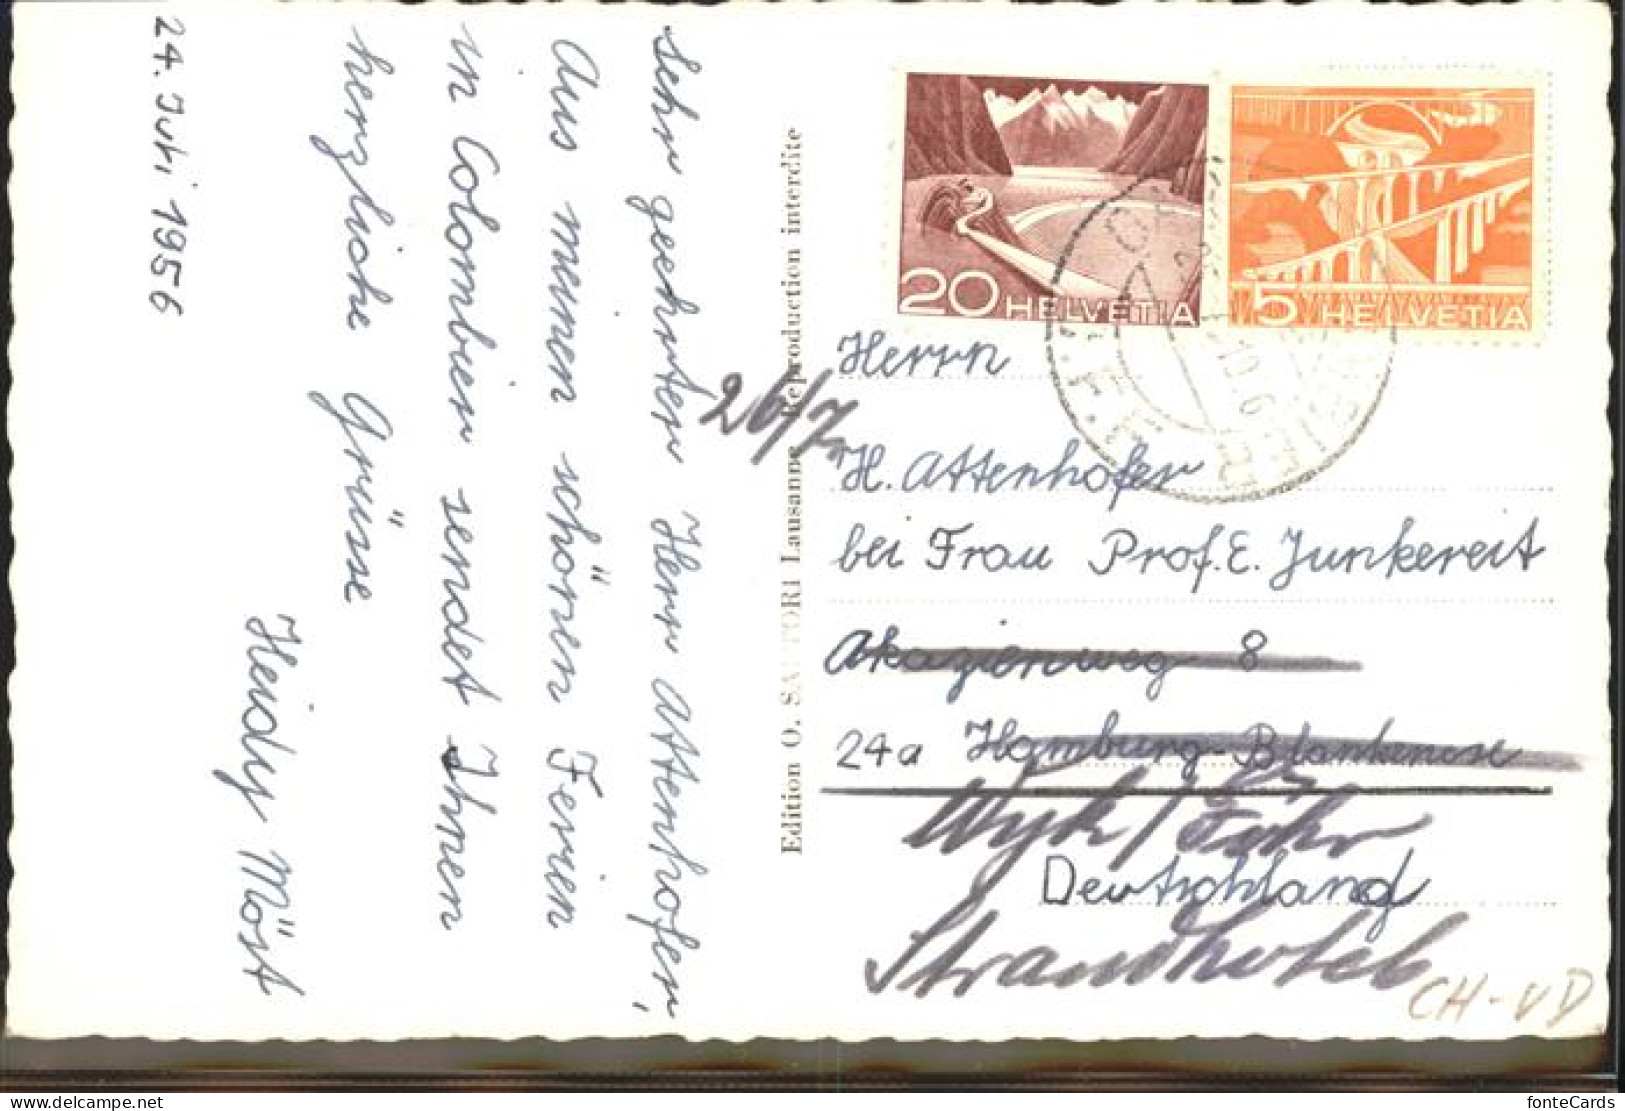 24. Juli 1956
Sehr geehrter Herr Attenhofer,
Aus meinen schönen Ferien
in Colombier sendet Ihnen
herzliche Grüsse
Heidy Möst
Edition O. SARTORI Lausanne Reproduction interdite
20 HELVETIA
5 HELVETIA
26/7
Herrn
H. Attenhofer
bei Frau Prof. E. Junkereit
Akazienweg 8
24a Hamburg-Blankenese
Wyk / Föhr
Deutschland
Strandhotel
CH-VD
fonteCards
www.delcampe.net